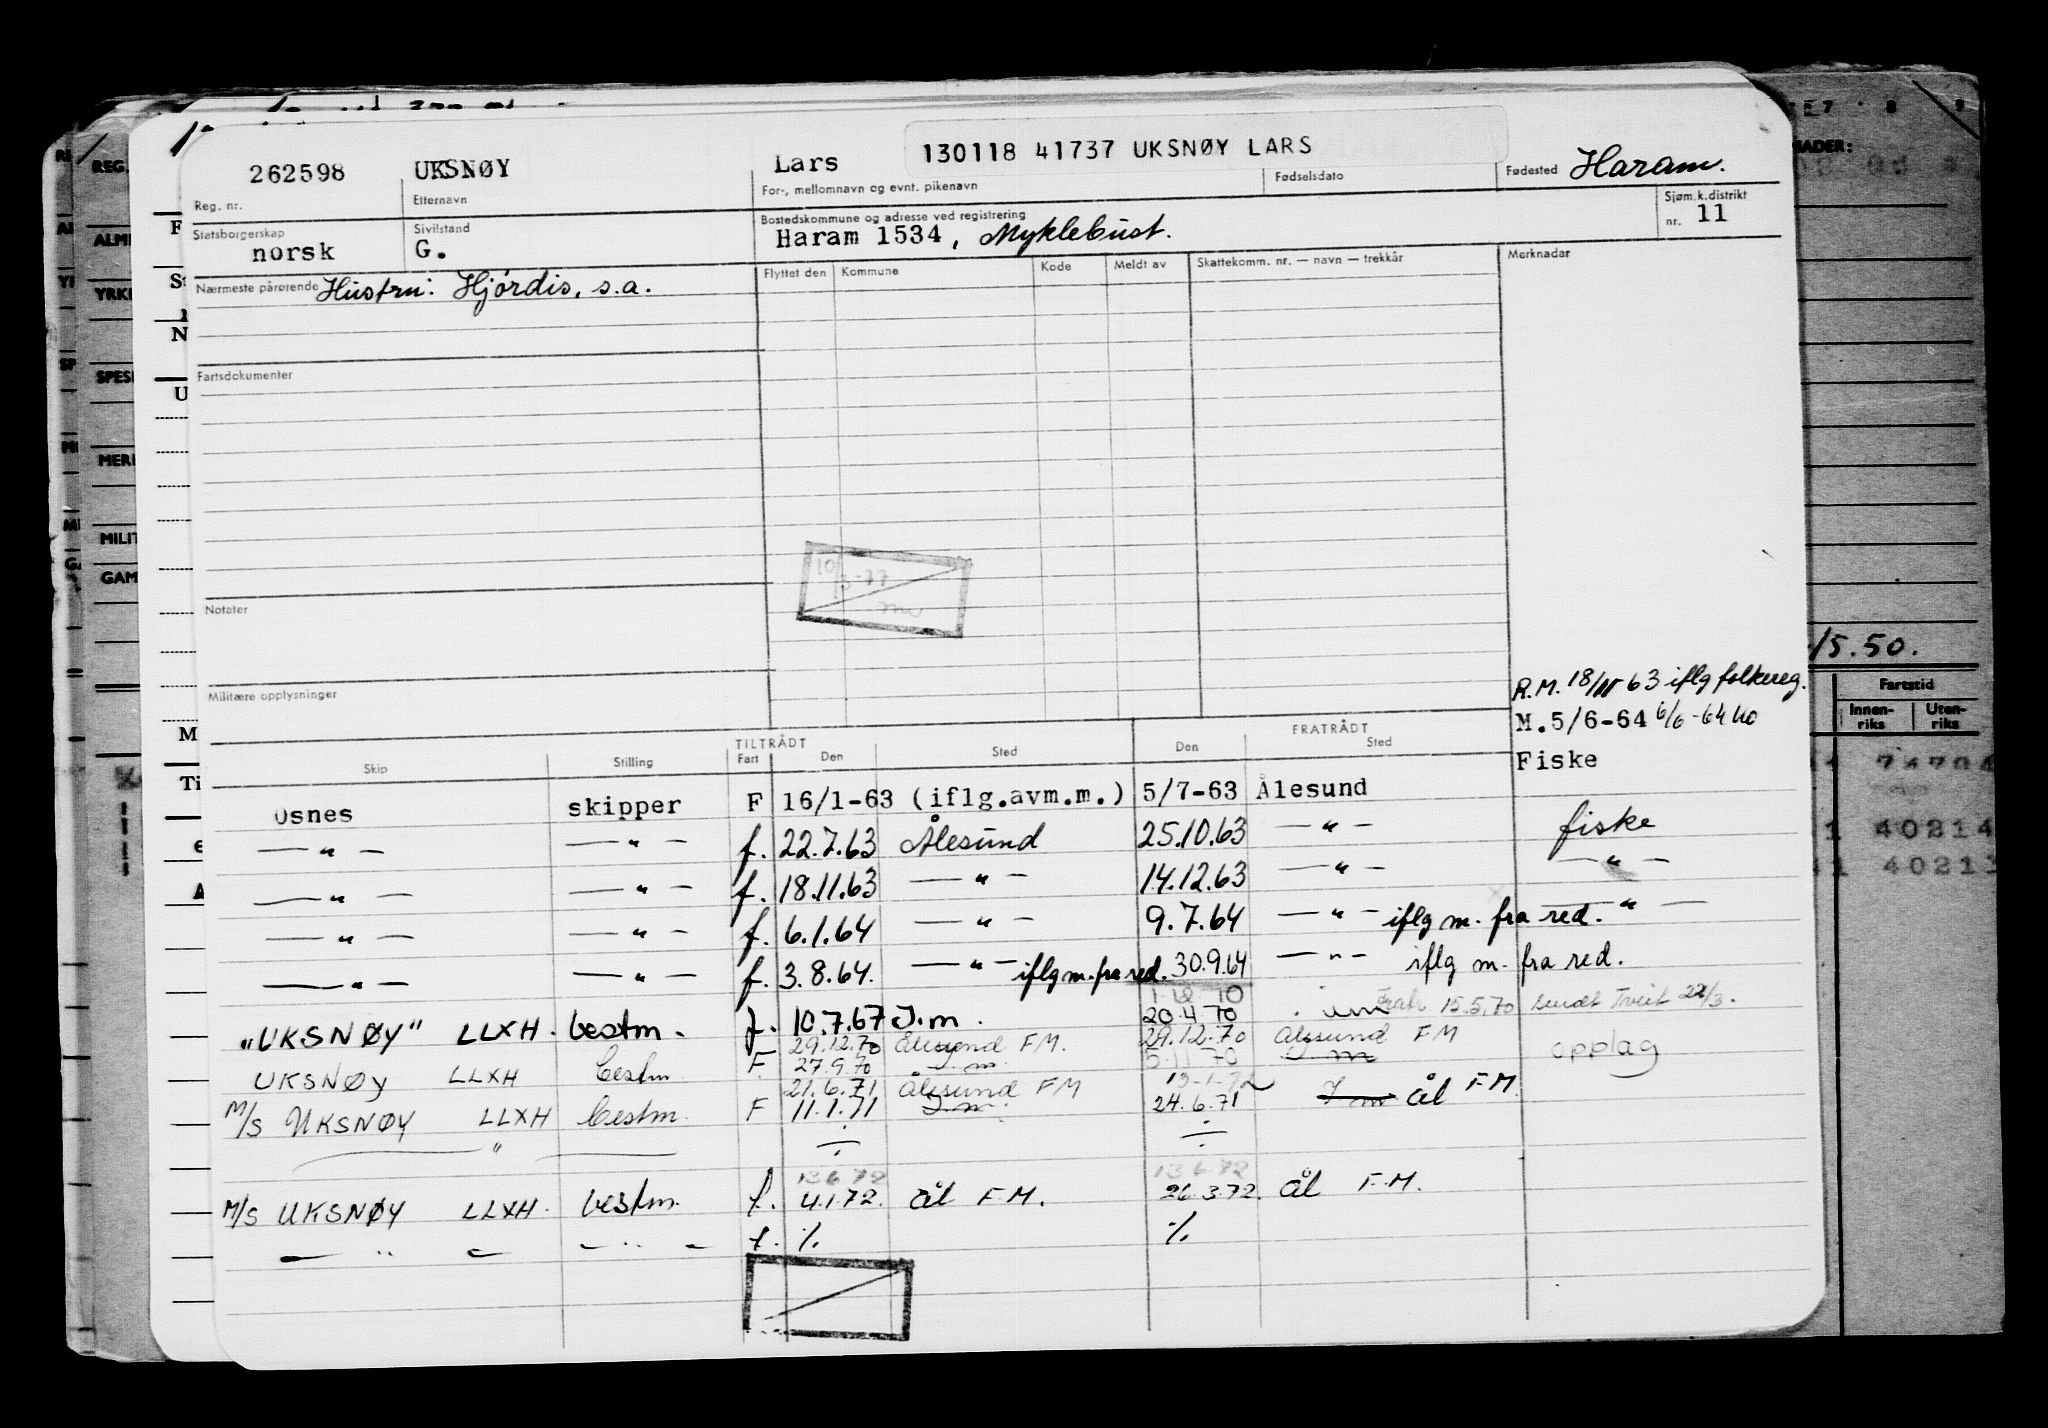 262598 UKSNØY Lars 130118 41737 UKSNØY LARS Haram.
Reg. nr. Etternavn For-, mellomnavn og evnt. pikenavn Fødselsdato Fødested
Statsborgerskap Sivilstand Bostedskommune og adresse ved registrering Sjøm.k.distrikt
norsk G. Haram 1534, Myklebust. nr. 11
Nærmeste pårørende Hustru: Hjørdis, s.a. Flyttet den Kommune Kode Meldt av Skattekomm. nr. — navn — trekkår Merknader
Fartsdokumenter
10/3-77
Notater
Militære opplysninger
R.M. 18/11 63 iflg folkereg.
M.5/6-64 6/6-64
TILTRÅDT FRATRÅDT
Skip Stilling Fart Den Sted Den Sted
Fiske
Osnes skipper F 16/1-63 (iflg.avm.m.) 5/7-63 Ålesund
— " — — " — f. 22.7.63 Ålesund 25.10.63 — " — fiske
— " — — " — f. 18.11.63 — " — 14.12.63 — " — — " —
— " — — " — f. 6.1.64 — " — 9.7.64 — " — iflg m. fra red. — " —
— " — — " — f. 3.8.64. — " — iflg m. fra red. 30.9.64 — " — iflg m. fra red.
1.12.70
"UKSNØY" LLXH. bestm. f. 10.7.67 I.m. 20.4.70 15.5.70 sendt 22/3.
29.12.70 Ålesund F M. 29.12.70 Ålesund F M
UKSNØY LLXH bestm F 27.9.70 I.m. 5.11.70 I m opplag
21.6.71 Ålesund F M 13-1-72
M/S UKSNØY LLXH bestm. F 11.1.71 I.m. 24.6.71 I m Ål F.M.
" ÷ ÷
13.6.72 13.6.72
M/S UKSNØY LLXH. bestm. f. 4.1.72. Ål F.M. 26.3.72. Ål F.M.
— " — — " — f. % %
REG.
ALM
YRK
SPESI
MERK
MILIT
GAM
7 8 9
15.50.
Fartstid
Innen-riks Uten-riks